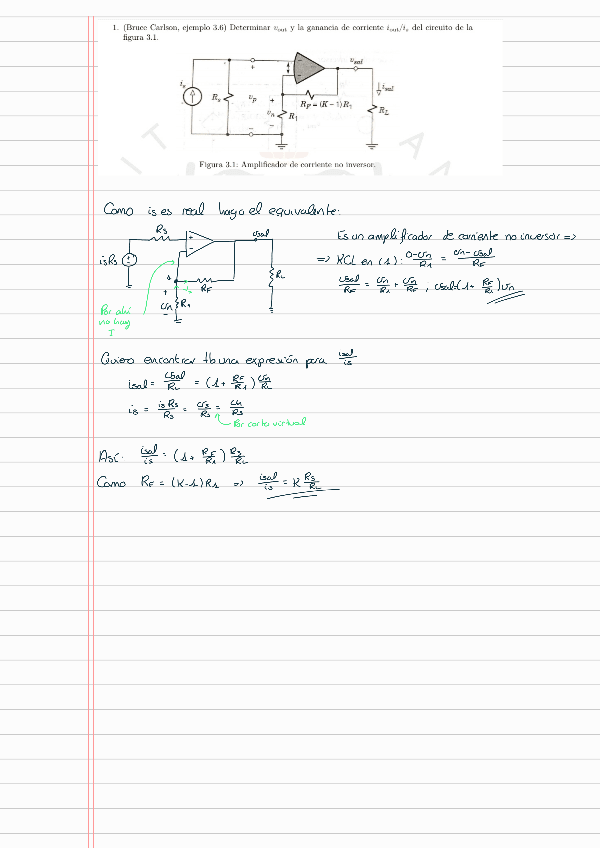 1. (Bruce Carlson, ejemplo 3.6) Determinar v_out y la ganancia de corriente i_out/i_s del circuito de la
figura 3.1.
i_s
R_s
+
v_p
−
+
v_n
−
R_1
R_F = (K − 1)R_1
v_sal
i_sal
R_L
Figura 3.1: Amplificador de corriente no inversor.
Como is es real hago el equivalente:
isRs
Rs
vsal
RL
1
RF
+
vn
−
R1
Por ahí
no hay
I
Es un amplificador de corriente no inversor =>
=> KCL en (1): (0-vn)/R1 = (vn-vsal)/RF
vsal/RF = vn/R1 + vn/RF , vsal=(1+ RF/R1)vn
Quiero encontrar tb una expresión para isal/is
isal = vsal/RL = (1+ RF/R1) vn/RL
is = isRs/Rs = vs/Rs = vn/Rs
Por corto virtual
Así: isal/is = (1+ RF/R1) Rs/RL
Como RF = (K-1)R1 => isal/is = K Rs/RL